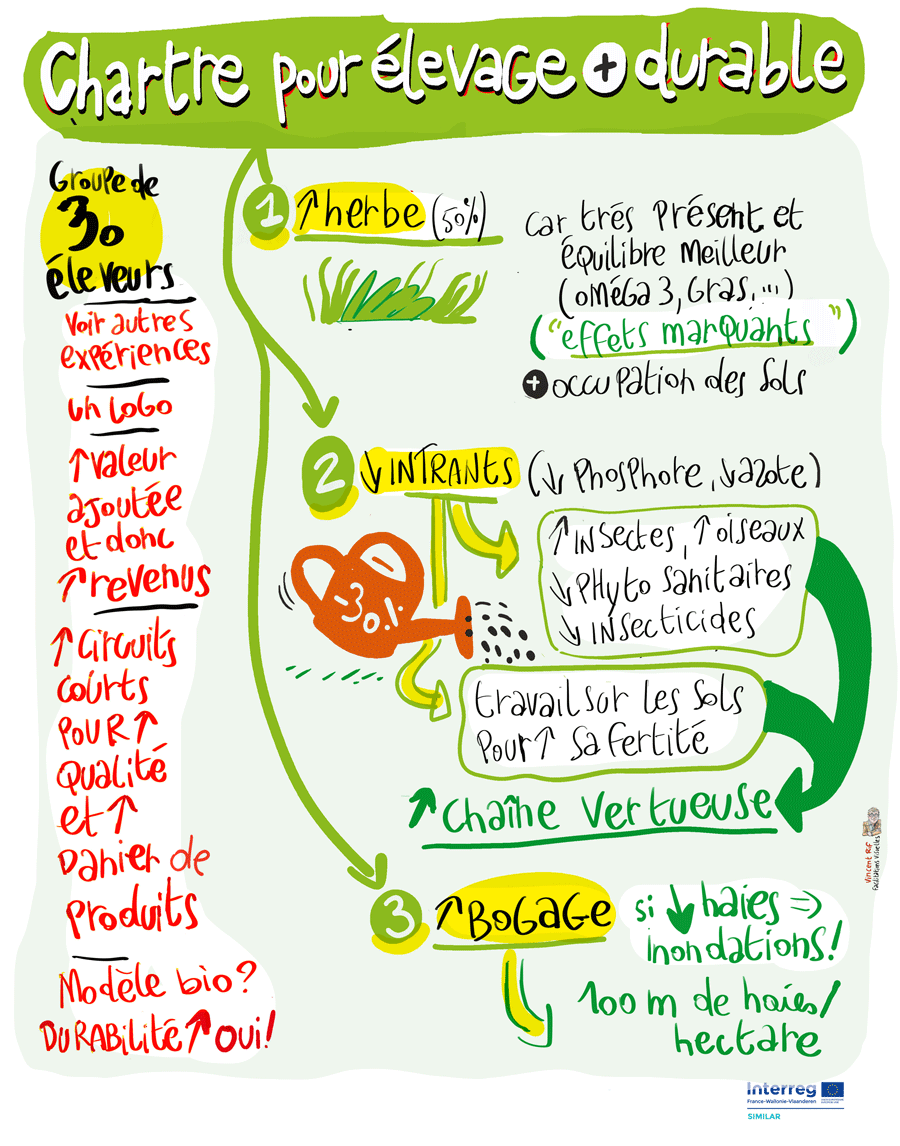 Chartre pour élevage + durable
Groupe de
30
éleveurs
Voir autres
expériences
un logo
↑ valeur
ajoutée
et donc
↑ revenus
↑ circuits
courts
pour ↑
qualité
et ↑
panier de
produits
Modèle bio?
DURABILITÉ ↑ oui!
1 ↑ herbe (50%)
car trés présent et
équilibre meilleur
(oméga 3, gras, ...)
("effets marquants")
+ occupation des sols
2 ↓ INTRANTS (↓ phosphore, ↓ azote)
↑ insectes, ↑ oiseaux
↓ PHyto sanitaires
↓ insecticides
-30%
travail sur les sols
pour ↑ sa fertité
↑ Chaîne vertueuse
3 ↑ BOGAGE
si ↓ haies =>
inondations!
100 m de haies/
hectare
Vincent Rif
Facilitations Visuelles
Interreg
France-Wallonie-Vlaanderen
SIMILAR